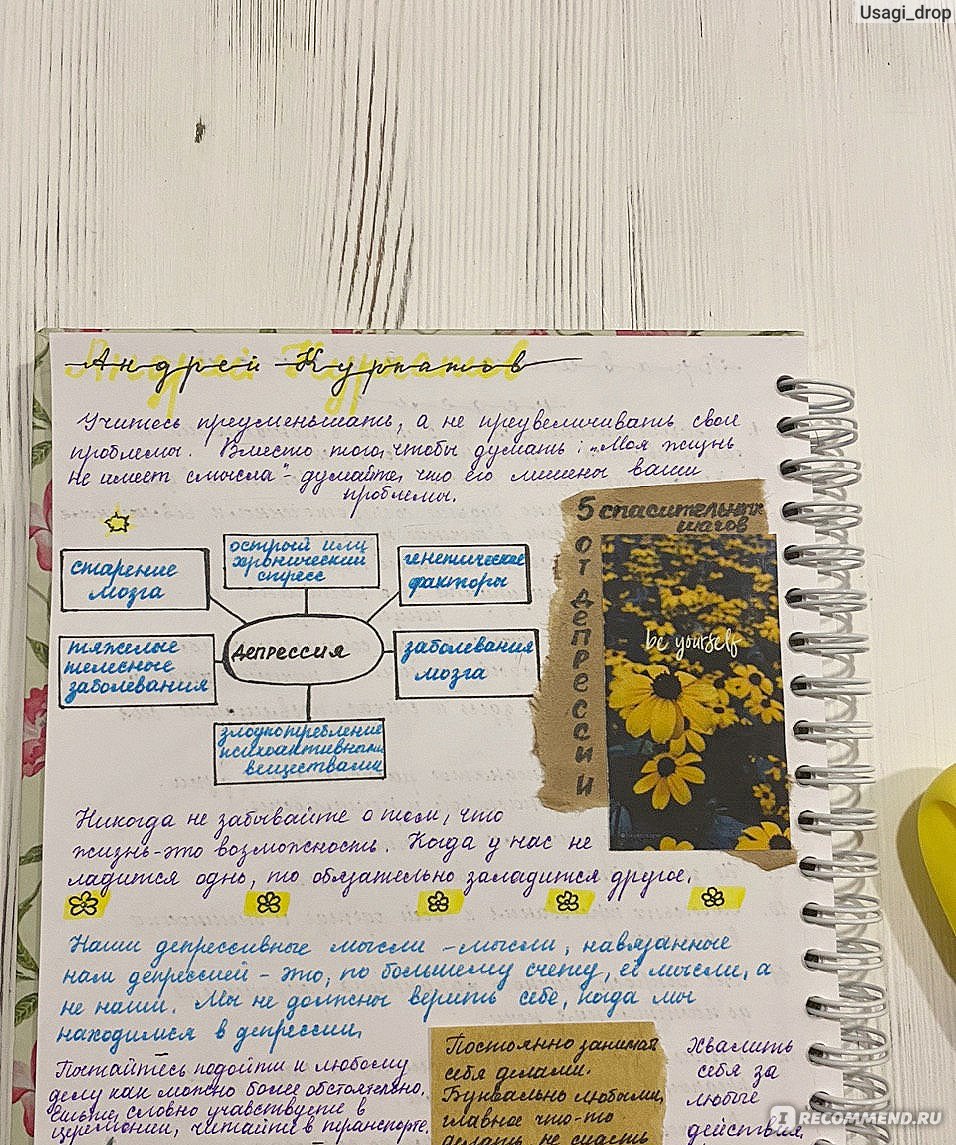 Usagi_drop
Андрей Курпатов
Учитесь преуменьшать, а не преувеличивать свои
проблемы. Вместо того, чтобы думать: „Моя жизнь
не имеет смысла" - думайте, что его лишены ваши
проблемы.
5 спасительных
шагов
от депрессии
be yourself
старение
мозга
острый или
хронический
стресс
генетические
факторы
тяжелые
телесные
заболевания
депрессия
заболевания
мозга
злоупотребление
психоактивными
веществами
Никогда не забывайте о том, что
жизнь-это возможность. Когда у нас не
ладится одно, то обязательно заладится другое.
Наши депрессивные мысли - мысли, навязанные
нам депрессией - это, по большему счету, её мысли, а
не наши. Мы не должны верить себе, когда мы
находимся в депрессии.
подойти к любому
делу как можно более обстоятельно.
словно участвуете в
церемонии, читайте в транспорте.
Постоянно занимат
себя делами.
Буквально любыми,
главное что-то
делать, не спасть
Хвалить
себя за
любые
действия,
IRECOMMEND.RU